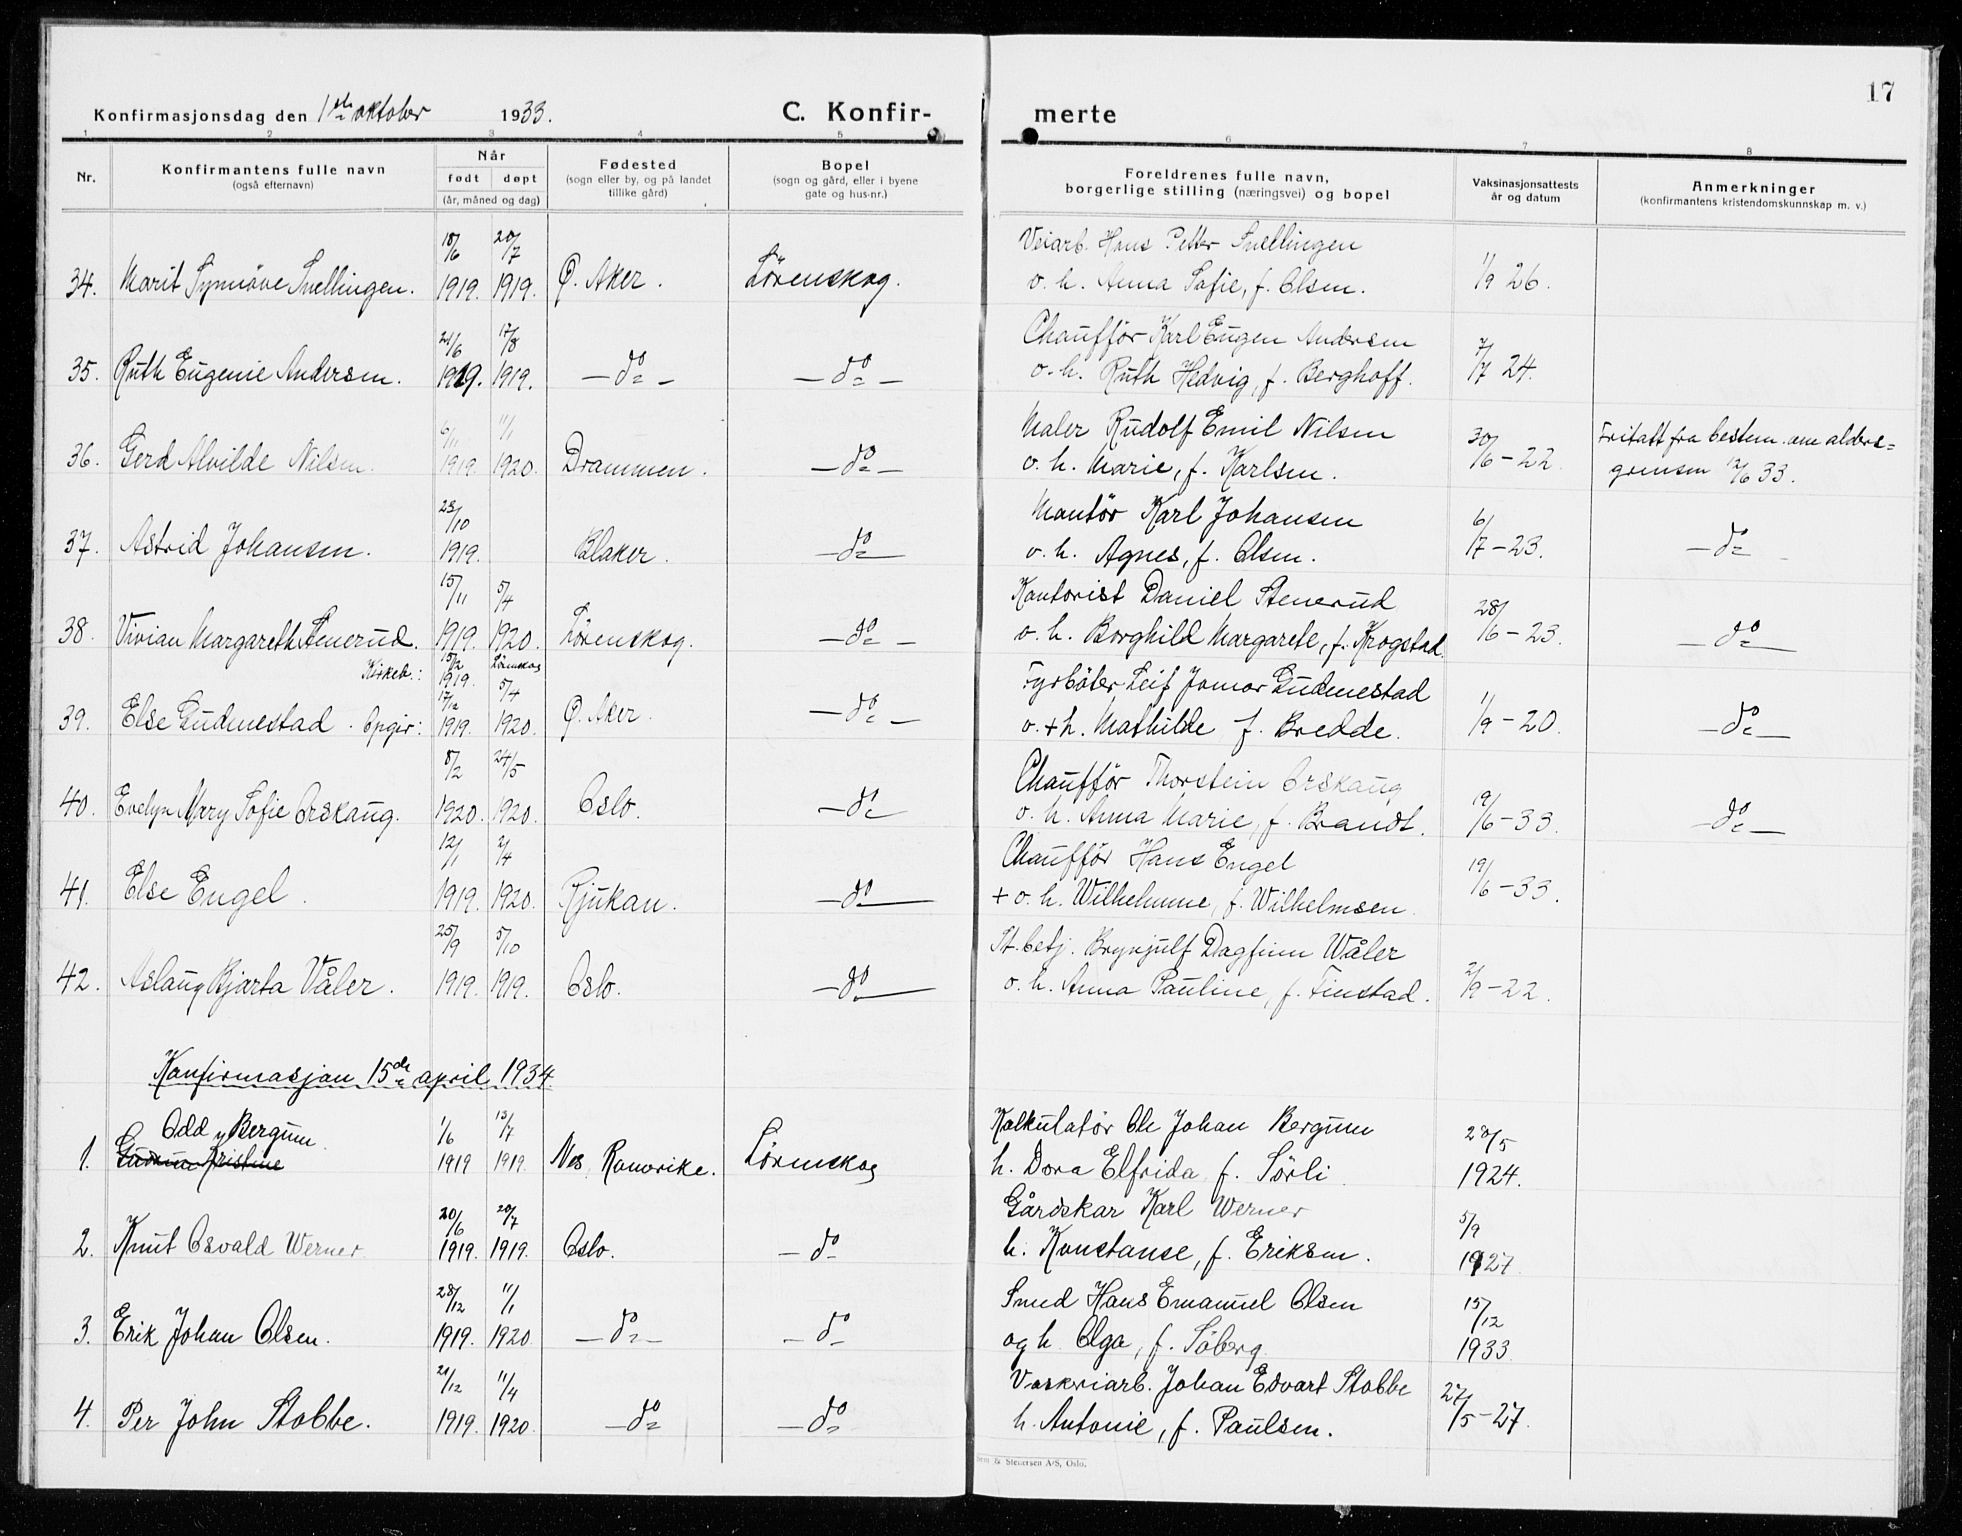 Konfirmasjonsdag den 1ste oktober 1933.
C. Konfir-
merte
17
1 2 3 4 5 6 7 8
Nr.
Konfirmantens fulle navn
(også efternavn)
Når
født døpt
(år, måned og dag)
Fødested
(sogn eller by, og på landet
tillike gård)
Bopel
(sogn og gård, eller i byene
gate og hus-nr.)
Foreldrenes fulle navn,
borgerlige stilling (næringsvei) og bopel
Vaksinasjonsattests
år og datum
Anmerkninger
(konfirmantens kristendomskunnskap m. v.)
18/6 20/7 Veiarb. Hans Petter Snellingen
34. Marit Synnöve Snellingen. 1919. 1919. Ø. Aker. Lörenskog. o. h. Anna Sofie, f. Olsen. 1/9 26.
21/6 17/8 Chaufför Karl Eugen Andersen
35. Ruth Eugenie Andersen. 1919. 1919. — do — — do — o. h. Ruth Hedvig, f. Berghoff. 7/7 24.
11/1 Maler Rudolf Emil Nilsen 30/6 - 22 Fritatt fra bestem. om alders=
36. Gerd Alvilde Nilsen. 1919. 1920. Drammen. — do — o. h. Marie, f. Karlsen. grensen 12/6 33.
23/10 Montör Karl Johansen
37. Astrid Johansen. 1919. Blaker. — do — o. h. Agnes, f. Olsen. 6/7 - 23. — do —
15/11 5/4 Kontorist Daniel Stenerud
38. Vivian Margareth Stenerud. 1919. 1920. Lörenskog. — do — o. h. Borghild Margarete, f. Krogstad. 28/6 - 23. — do —
Kirkeb.: 15/2 1919. Lörenskog
17/12 5/4 Fyrböter Leif Jomar Gudmestad
39. Else Gudmestad. Opgir: 1919. 1920. Ø. Aker. — do — o. + h. Mathilde f. Bredde. 1/9 - 20. — do —
8/2 24/5 Chaufför Thorstein Orskaug
40. Evelyn Mary Sofie Orskaug. 1920. 1920. Oslo. — do — o. h. Anna Marie, f. Brandt. 19/6 - 33. — do —
12/1 2/4 Chaufför Hans Engel
41. Else Engel. 1919. 1920. Rjukan. — do — + o. h. Wilhelmine, f. Wilhelmsen. 19/6 - 33.
25/9 5/10 St. betj. Brynjulf Dagfinn Wåler
42. Aslaug Bjarta Våler. 1919. 1919. Oslo. — do — o. h. Anna Pauline, f. Finstad. 2/9 - 22.
Konfirmasjon 15de april 1934
Odd Bergum 1/6 13/7 Kalkulatör Ole Johan Bergum 20/5
1. Gudrun Kristine 1919 1919. Nes, Romerike. Lörenskog h. Dora Elfrida f. Sörli 1924.
20/6 20/7 Gårdskar Karl Werner 5/9
2. Knut Osvald Werner 1919. 1919. Oslo. — do — h. Konstanse, f. Eriksen. 1927.
28/12 11/1 Smed Hans Emanuel Olsen 15/12
3. Erik Johan Olsen. 1919. 1920 — do — — do — og h. Olga, f. Söberg. 1933.
21/12 11/4 Vaskeriarb. Johan Edvart Stobbe
4. Per John Stobbe. 1919. 1920. — do — — do — h. Antonie, f. Paulsen. 27/5 - 27.
& Stenersen A/S, Oslo.